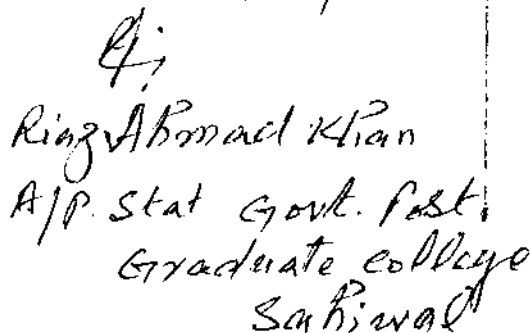 Riaz Ahmad Khan
A/P. Stat Govt. Post
Graduate College
Sahiwal